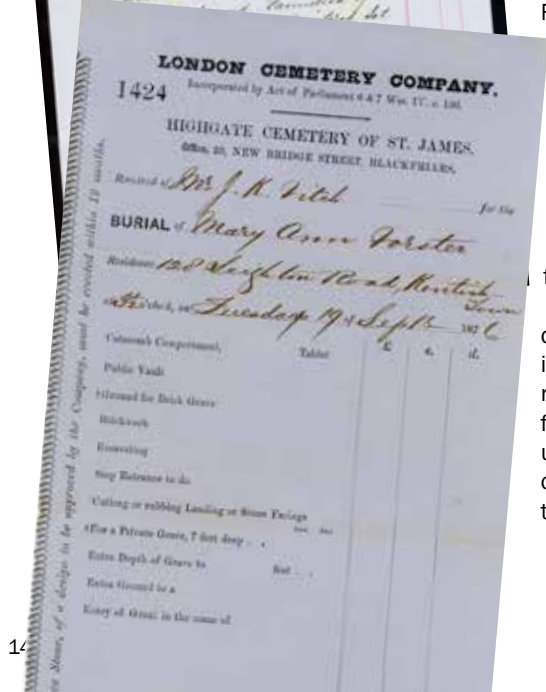 LONDON CEMETERY COMPANY.
1424 Incorporated by Act of Parliament 6 & 7 Wm. IV. c. 136.
HIGHGATE CEMETERY OF ST. JAMES.
Office, 20, NEW BRIDGE STREET, BLACKFRIARS.
Received of Mr J. K. Fitch for the
BURIAL of Mary Ann Forster
Residence 128 Leighton Road, Kentish Town
o'clock, on Tuesday 19 Sept 1876
£. s. d.
Catacomb Compartment, Tablet
Public Vault
Ground for Brick Grave
Brickwork
Excavating
Step Entrance to do.
Cutting or rubbing Landing or Stone Facings
For a Private Grave, 7 feet deep
Extra Depth of Grave to feet
Extra Ground to a
Entry of Grant in the name of
Stone, of a design to be approved by the Company, must be erected within 12 months.
14